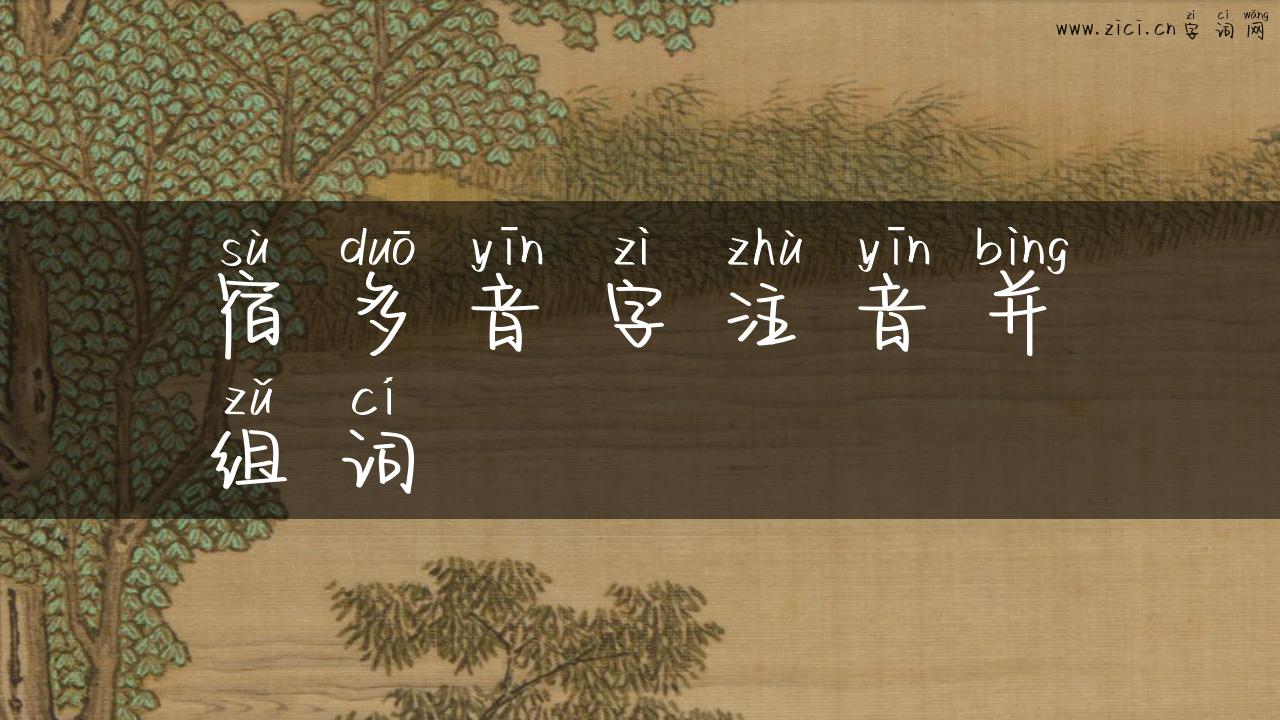 zì cí wǎng
www.zici.cn字词网
sù duō yīn zì zhù yīn bìng
宿多音字注音并
zǔ cí
组词